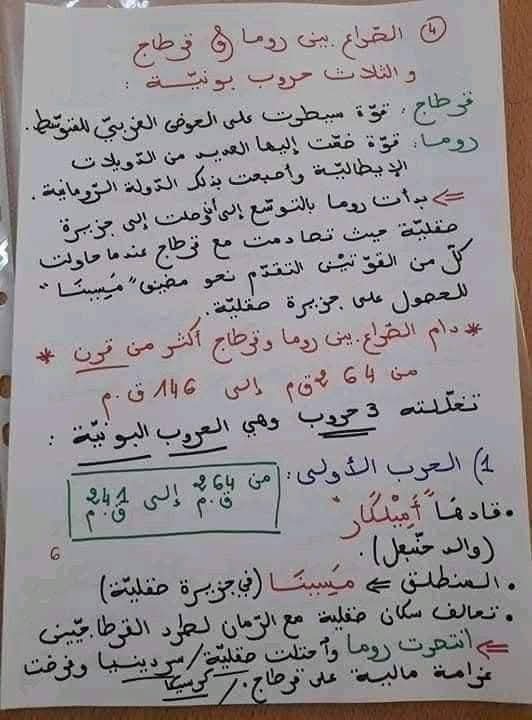 ④ الصّراع بين روما و قرطاج
و الثلاث حروب بونيّة :
قرطاج : قوّة سيطرت على الحوض الغربيّ للمتوسّط.
روما : قوّة ضمّت إليها العديد من الدّويلات
الإيطاليّة وأصبحت بذلك الدّولة الرّومانية.
⇐ بدأت روما بالتوسّع إلى أن وصلت إلى جزيرة
صقليّة حيث تصادمت مع قرطاج عندما حاولت
كلّ من القوّتين التقدّم نحو مضيق "مَسِينَا"
للحصول على جزيرة صقليّة.
* دام الصّراع بين روما وقرطاج أكثر من قرن *
من 264 ق.م إلى 146 ق.م
تخلّلته 3 حروب وهي الحروب البونيّة :
1) الحرب الأولى : من 264 ق.م إلى 241 ق.م
• قادها "أَمِلْكَار"
(والد حنبعل).
6
• المنطلق ⇐ مَسِينَا (في جزيرة صقليّة)
• تحالف سكان صقلية مع الرّمان لطرد القرطاجيّين
⇐ انتصرت روما واحتلت صقليّة / سردينيا وفرضت
غرامة مالية على قرطاج. / كورسيكا